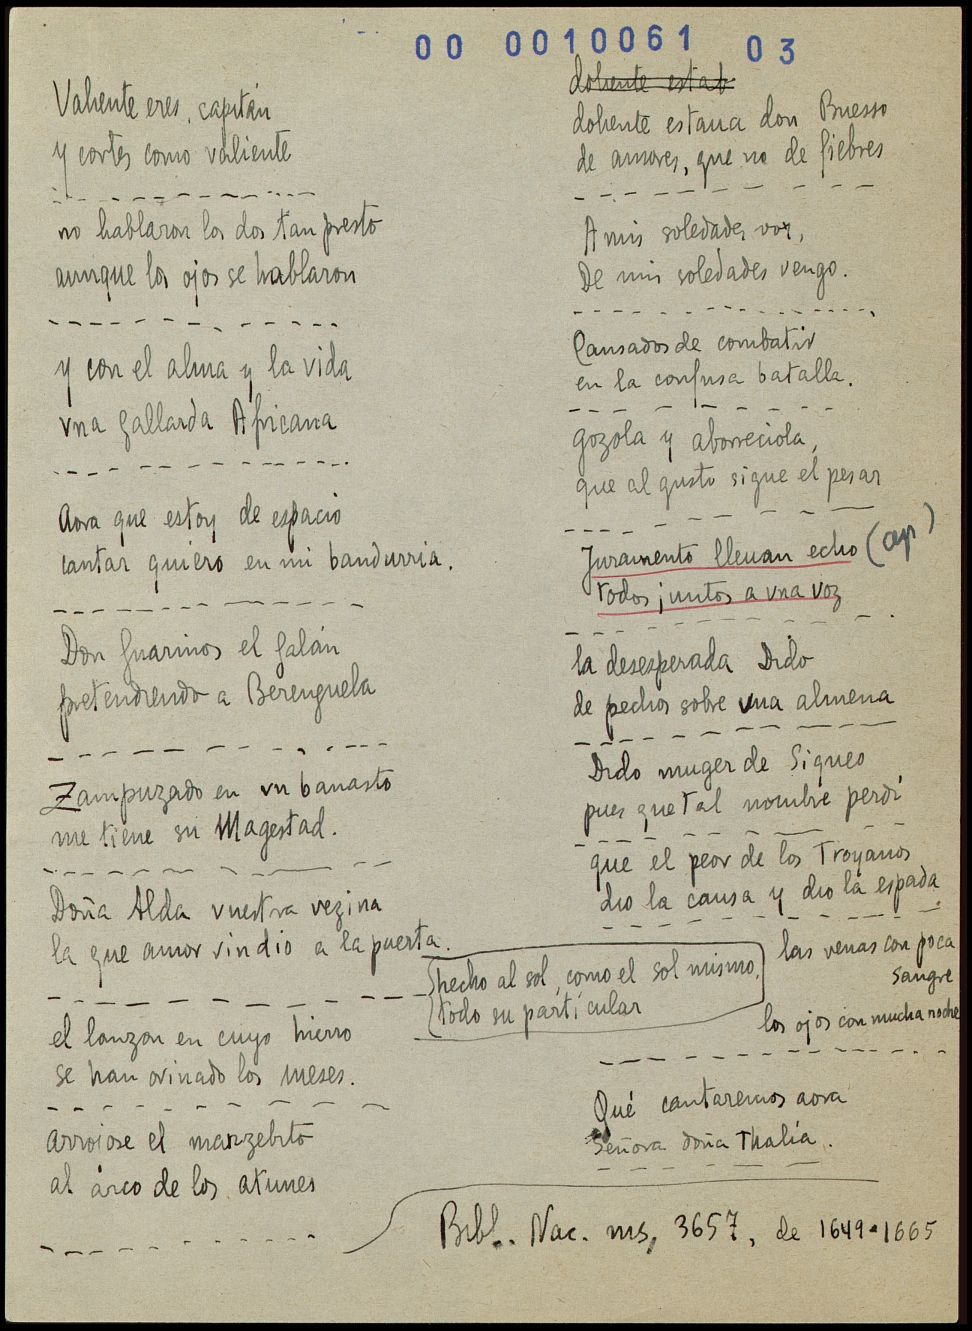 00 0010061 03
Valiente eres, capitán
y cortes como valiente
no hablaron los dos tan presto
aunque los ojos se hablaron
y con el alma y la vida
vna gallarda Africana
Aora que estoy de espacio
cantar quiero en mi bandurria.
Don Guarinos el galán
pretendiendo a Berenguela
Zampuzado en vn banasto
me tiene su Magestad.
Doña Alda vuestra vezina
la que amor rindio a la puerta.
el lanzon en cuyo hierro
se han orinado los meses.
arrojose el manzebito
al árco de los atunes
doliente estab
doliente estaua don Buesso
de amores, que no de fiebres
A mis soledades voy,
De mis soledades vengo.
Cansados de combatir
en la confusa batalla.
gozola y aborreciola,
que al gusto sigue el pesar
Juramento lleuan echo
todos juntos a vna voz
la desesperada Dido
de pechos sobre vna almena
Dido muger de Siqueo
pues que tal nombre perdí
que el peor de los Troyanos
dio la causa y dio la espada
las venas con poca
sangre
los ojos con mucha noche
hecho al sol, como el sol mismo,
todo su partícular
Qué cantaremos aora
Señora doña Thalía.
Bibl. Nac. ms, 3657, de 1649-1665